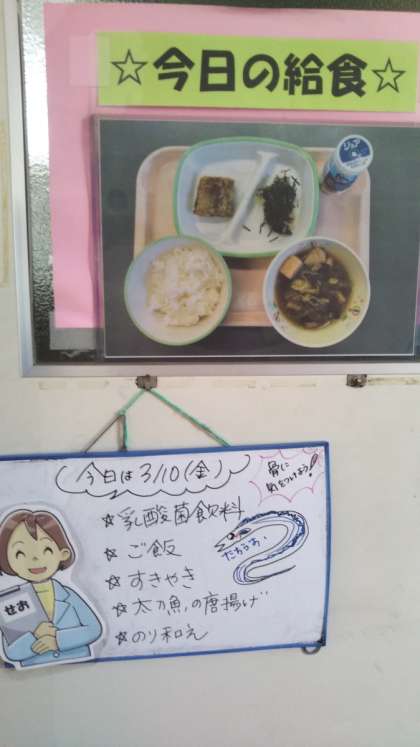 ☆今日の給食☆
ジョア
今日は3/10(金)
骨に
気をつけよう!
☆乳酸菌飲料
☆ご飯
☆すきやき
☆太刀魚の唐揚げ
☆のり和え
たちうお
せお